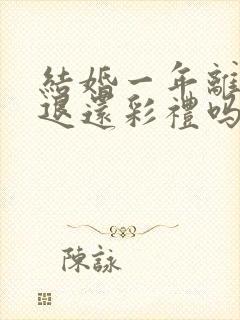 結婚一年離
退還彩禮嗎
陳詠